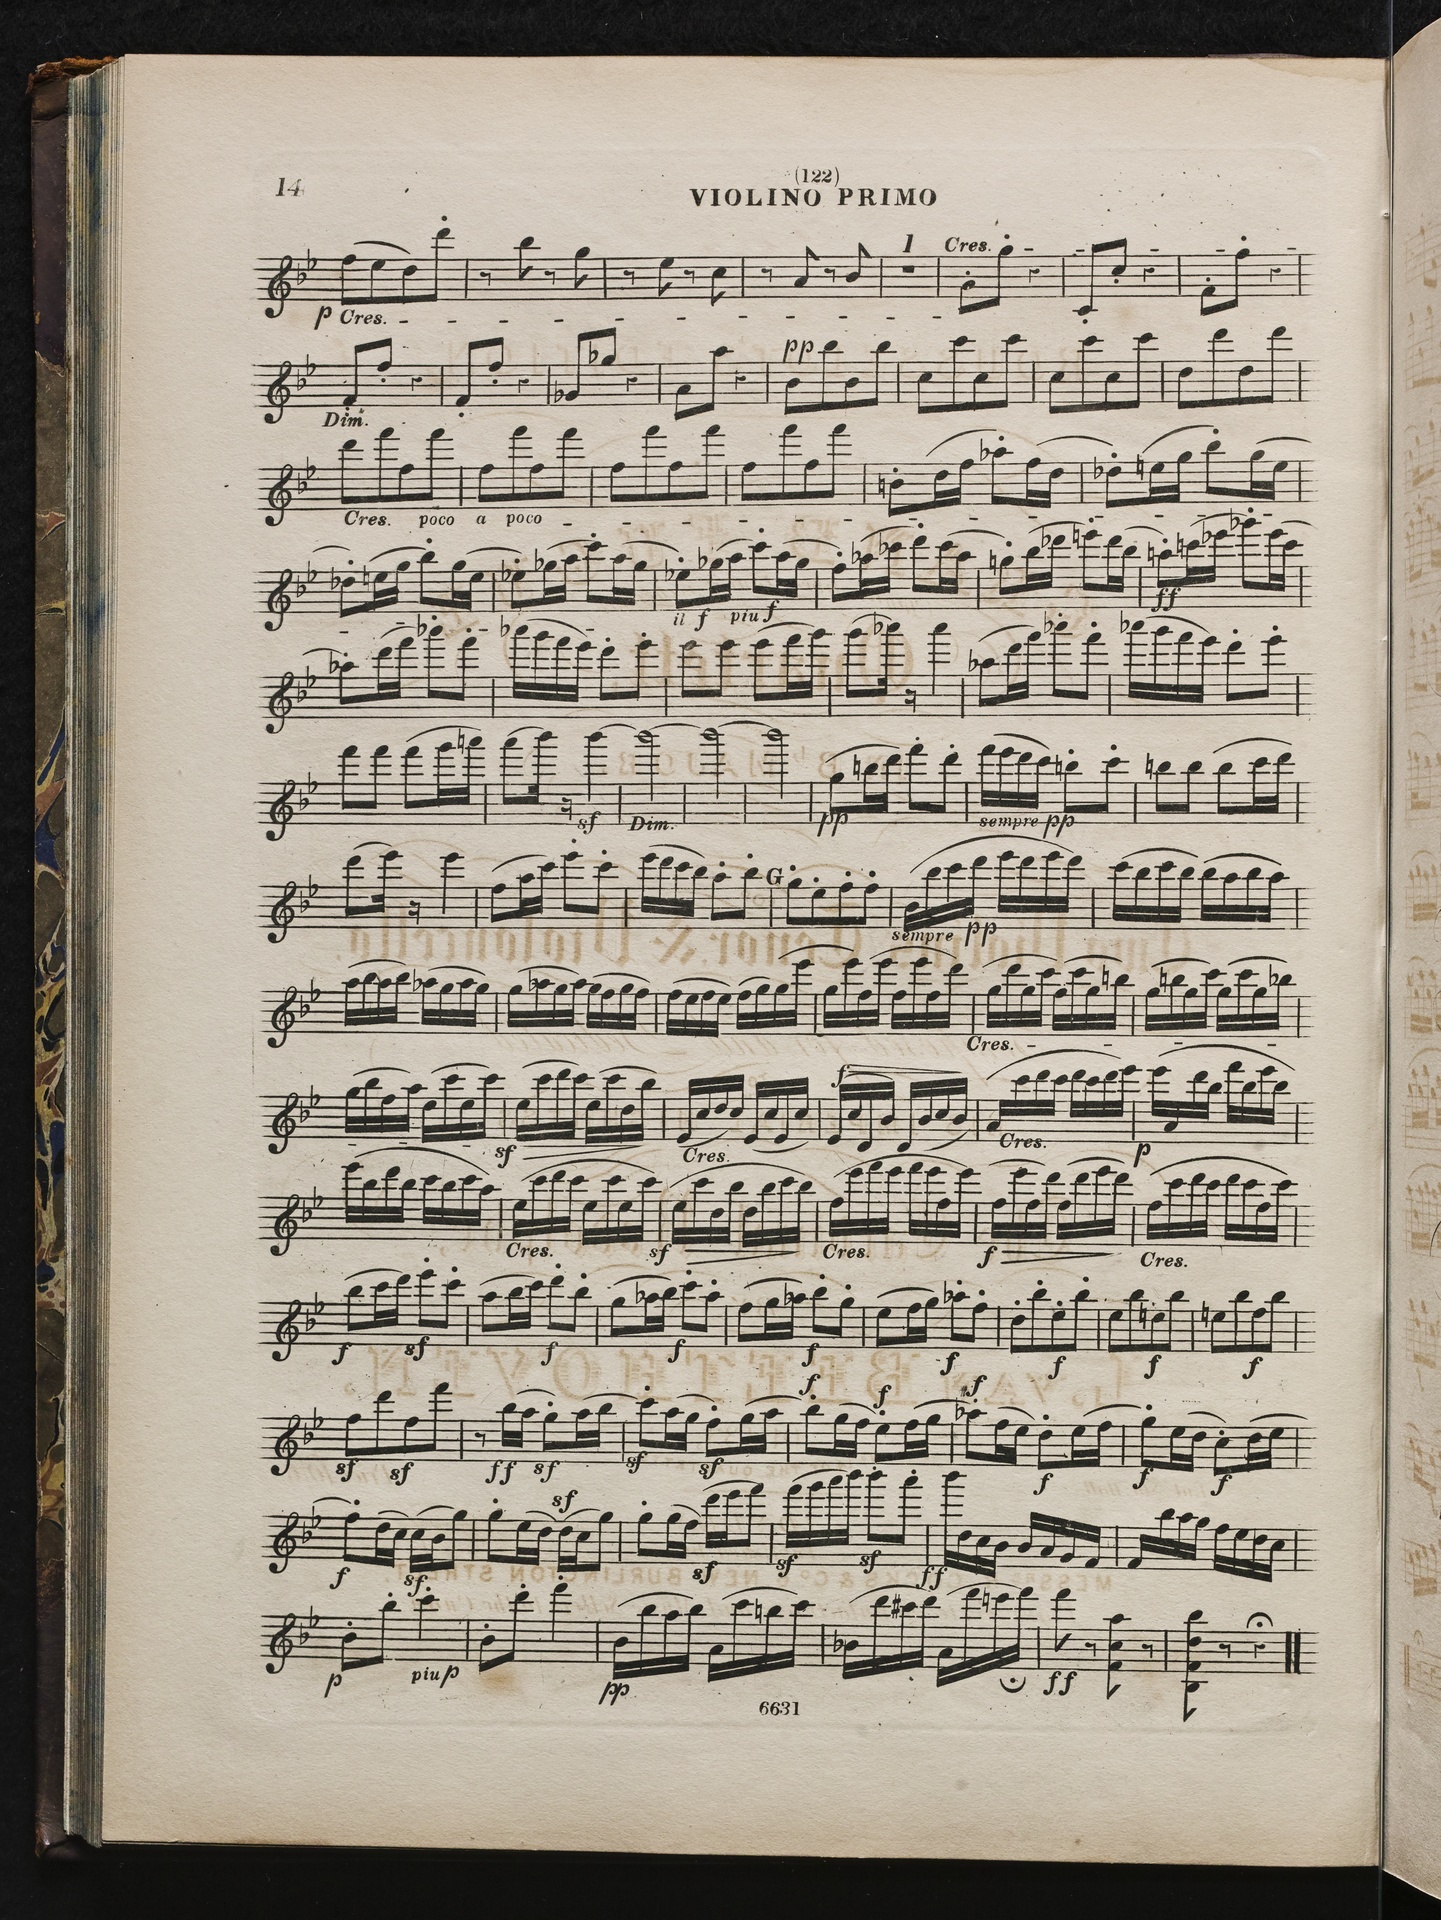 14
(122)
VIOLINO PRIMO
1 Cres.
p Cres.
pp
Dim.
Cres. poco a poco
il f piu f ff
sf Dim. pp sempre pp
G
sempre pp
Cres.
f
sf Cres. Cres. p
Cres. sf Cres. f Cres.
f sf f f f f f f f
f f f
sf sf ff sf sf sf f f f
sf
f sf sf sf sf ff
p piu p pp ff
6631